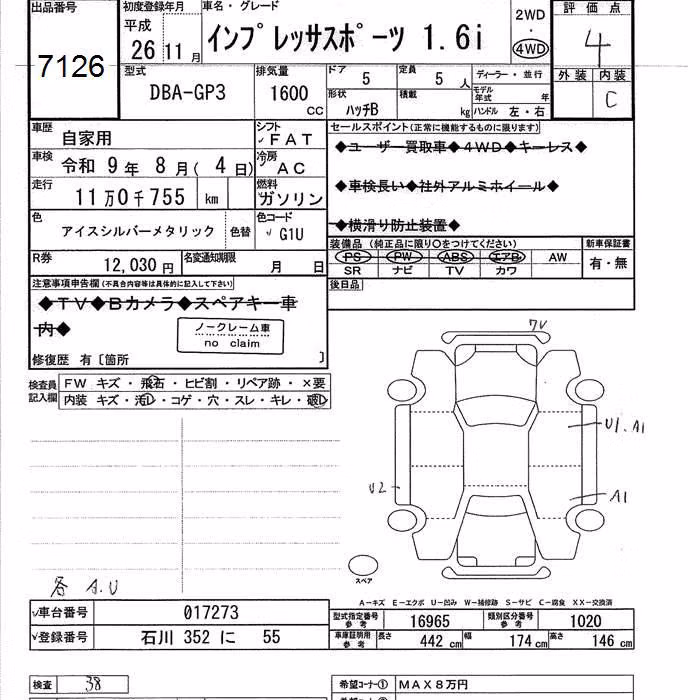 出品番号
7126
初度登録年月
平成
26 11 月
車名・グレード
インプレッサスポーツ 1.6i
2WD
・
4WD
評価点
4
外装 内装
C
型式
DBA-GP3
排気量
1600
CC
ドア
5
定員
5 人
ディーラー・並行
形状
ハッチB
積載
kg
モデル年式 年
ハンドル 左・右
車歴
自家用
シフト
FAT
車検
令和 9年 8月( 4日)
冷房
AC
走行
11万0千755 km
燃料
ガソリン
色
アイスシルバーメタリック
色替
色コード
G1U
R券
12,030円
名変通知期限
月 日
セールスポイント(正常に機能するものに限ります)
◆ユーザー買取車◆4WD◆キーレス◆
◆車検長い◆社外アルミホイール◆
◆横滑り防止装置◆
装備品 (純正品に限り○をつけてください)
PS PW ABS エアB AW
SR ナビ TV カワ
新車保証書
有・無
後日品
注意事項申告欄(不具合内容等は具体的に記入して下さい)
◆TV◆Bカメラ◆スペアキー車
内◆
ノークレーム車
no claim
修復歴 有〔箇所 〕
検査員記入欄
FW キズ・飛石・ヒビ割・リペア跡・×要
内装 キズ・汚レ・コゲ・穴・スレ・キレ・破レ
7V
U1.A1
U2
A1
スペア
各 A.U
A-キズ E-エクボ U-凹み W-補修跡 S-サビ C-腐食 XX-交換済
車台番号 017273
登録番号 石川 352 に 55
型式指定番号参考 16965 類別区分番号参考 1020
車庫証明用参考 長さ 442 cm 幅 174 cm 高さ 146 cm
検査 38
希望コーナー① MAX8万円
希望コーナー②